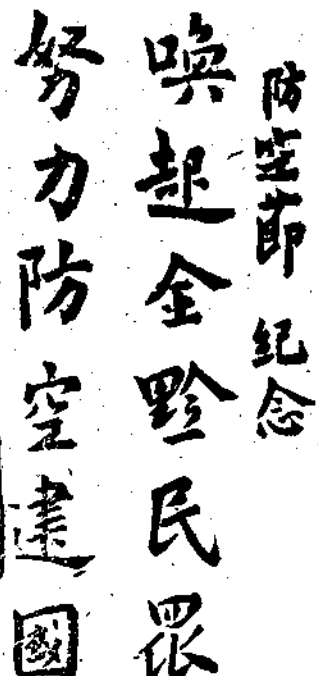 防空節 紀念
喚起全黔民眾
努力防空建國